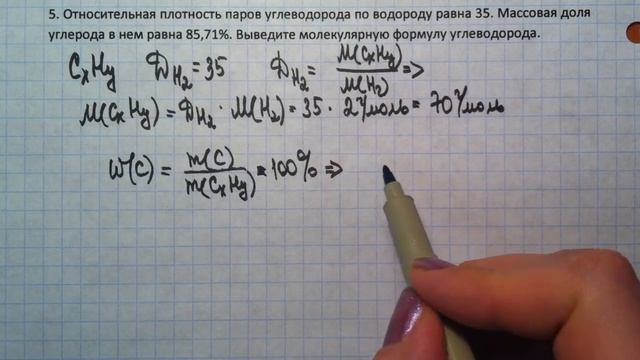 5. Относительная плотность паров углеводорода по водороду равна 35. Массовая доля
углерода в нем равна 85,71%. Выведите молекулярную формулу углеводорода.
CxHy DH2 = 35 DH2 = M(CxHy)/M(H2) =>
M(CxHy) = DH2 · M(H2) = 35 · 2 г/моль = 70 г/моль
W(C) = m(C)/m(CxHy) · 100% =>